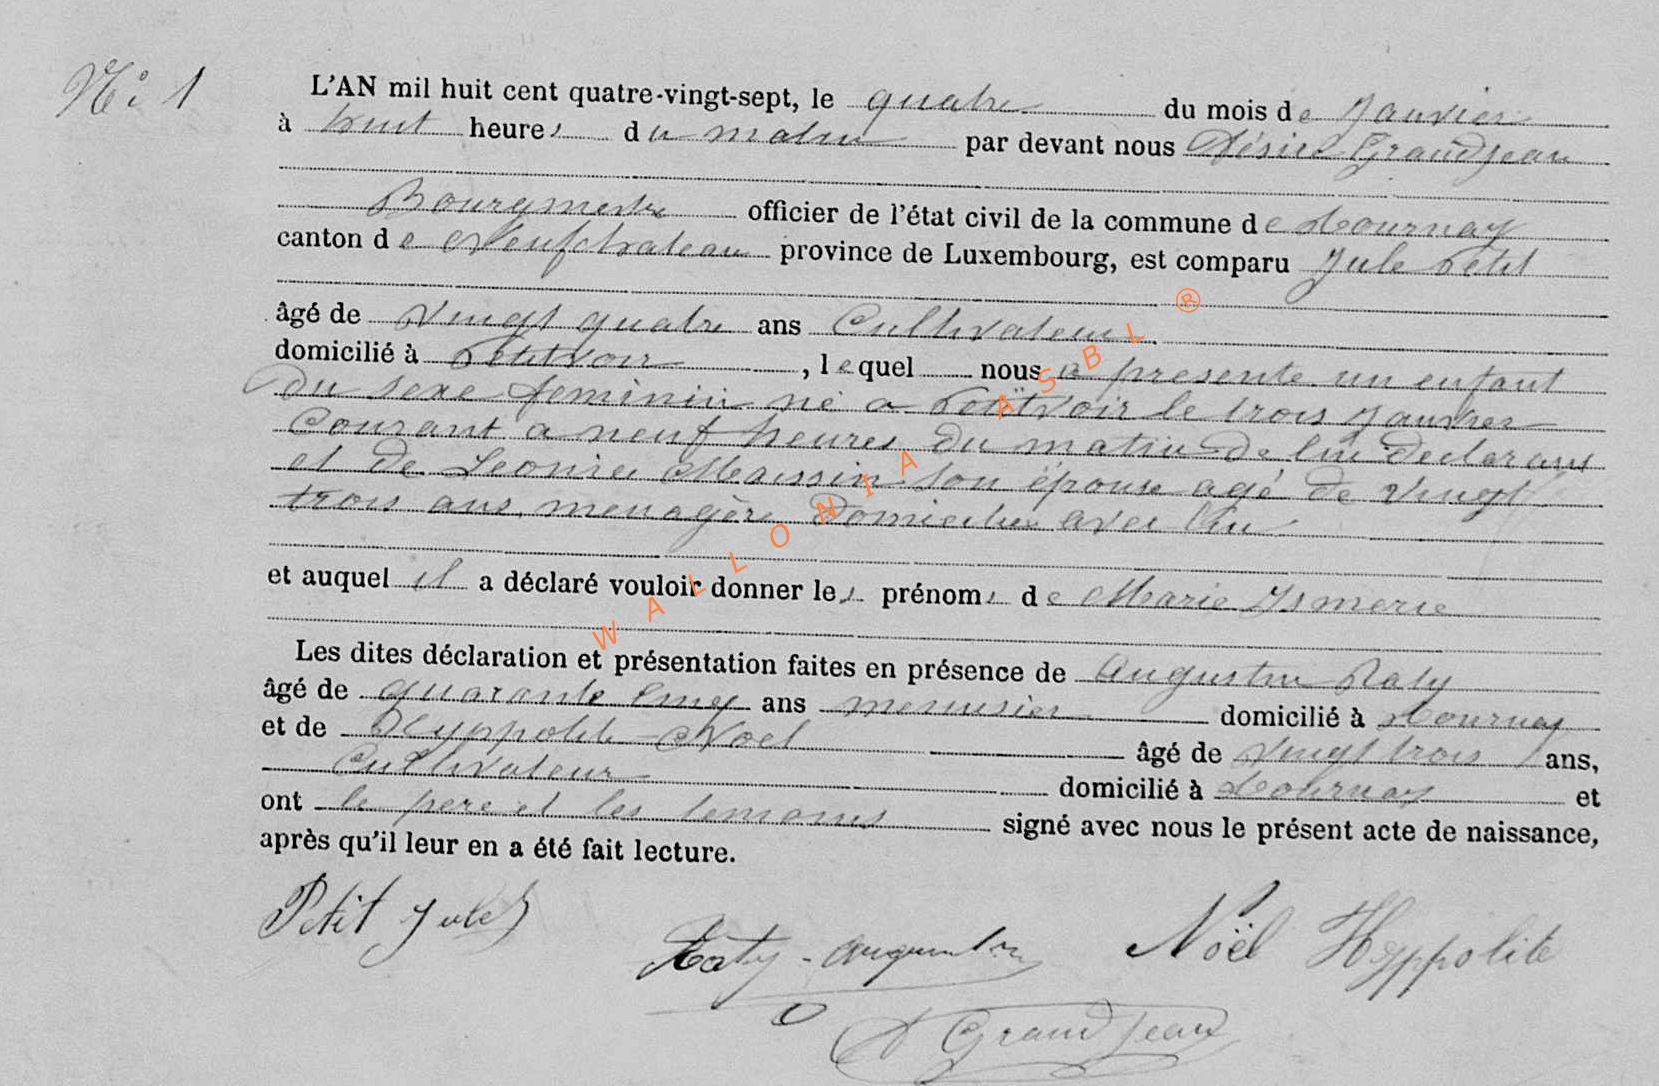 N° 1
L'AN mil huit cent quatre-vingt-sept, le quatre du mois de Janvier
à huit heures du matin par devant nous Désiré Grandjean
Bourgmestre officier de l'état civil de la commune de Tournay
canton de Neufchateau province de Luxembourg, est comparu Jule Petit
âgé de vingt quatre ans Cultivateur
domicilié à Petitvoir, lequel nous a presente un enfant
du sexe feminin né a Petitvoir le trois Janvier
Courant a neuf heures du matin de lui declarant
et de Leonie Maissin son épouse agé de vingt
trois ans, menagère domicilié avec lui
et auquel il a déclaré vouloir donner les prénoms de Marie Ismerie
Les dites déclaration et présentation faites en présence de Augustin
âgé de quarante cinq ans menusier domicilié à Tournay
et de Hyppolite Noel âgé de vingt trois ans,
Cultivateur domicilié à Tournay et
ont le pere et les temoins signé avec nous le présent acte de naissance,
après qu'il leur en a été fait lecture.
Petit Jules
Augustin
Noël Hyppolite
D Grandjean
WALLONIA ASBL ®